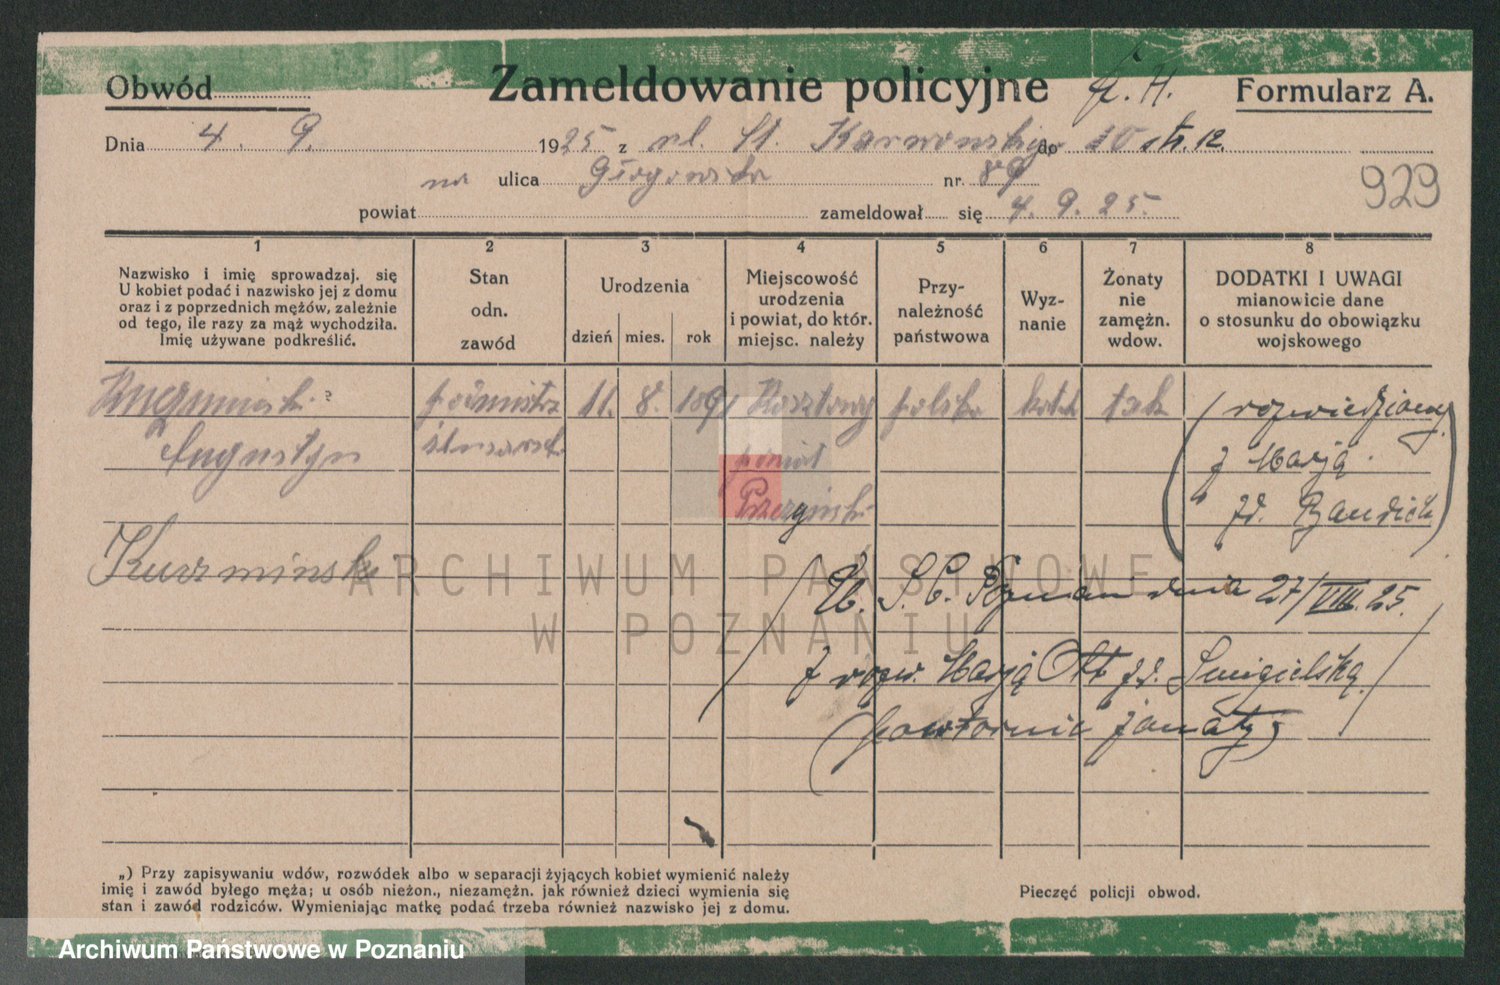 Obwód
Zameldowanie policyjne
Formularz A.
Dnia 4. 9. 1925 z ul. St. Karwowskiego do str. 12.
na ulica Głogowska nr. 89
929
powiat zameldował się 4. 9. 25.
1 2 3 4 5 6 7 8
Nazwisko i imię sprowadzaj. się
U kobiet podać i nazwisko jej z domu
oraz i z poprzednich mężów, zależnie
od tego, ile razy za mąż wychodziła.
Imię używane podkreślić.
Stan
odn.
zawód
Urodzenia
dzień mies. rok
Miejscowość
urodzenia
i powiat, do któr.
miejsc. należy
Przy-
należność
państwowa
Wyz-
nanie
Żonaty
nie
zamężn.
wdow.
DODATKI I UWAGI
mianowicie dane
o stosunku do obowiązku
wojskowego
11. 8. 189 polska katol tak (rozwiedziony
Augustyn ślusarsk. powiat z Marją
zd.
Kuzminski
U. S. C. Poznań dnia 27/VIII. 25.
z rozw. Marją Ott zd. Smigielską
(powtórnie żonaty)
„) Przy zapisywaniu wdów, rozwódek albo w separacji żyjących kobiet wymienić należy
imię i zawód byłego męża; u osób nieżon., niezamężn. jak również dzieci wymienia się
stan i zawód rodziców. Wymieniając matkę podać trzeba również nazwisko jej z domu.
Pieczęć policji obwod.
ARCHIWUM PAŃSTWOWE
W POZNANIU
Archiwum Państwowe w Poznaniu